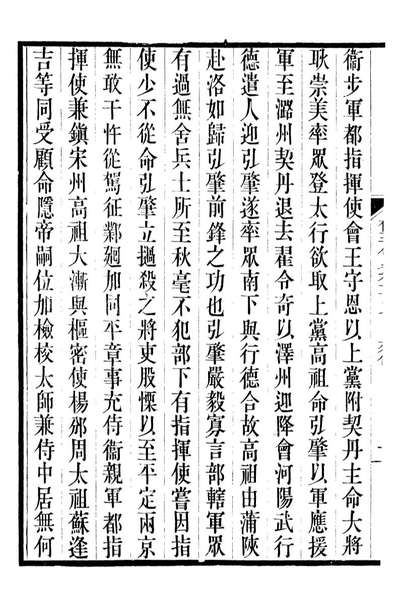 衞步軍都指揮使會王守恩以上黨附契丹主命大將
耿崇美率眾登太行欲取上黨高祖命弘肇以軍應援
軍至潞州契丹退去翟令奇以澤州迎降會河陽武行
德遣人迎弘肇遂率眾南下與行德合故高祖由蒲陝
赴洛如歸弘肇前鋒之功也弘肇嚴毅寡言部轄軍眾
有過無舍兵士所至秋毫不犯部下有指揮使嘗因指
使少不從命弘肇立撾殺之將吏股慄以至平定兩京
無敢干忤從駕征鄴廻加同平章事充侍衞親軍都指
揮使兼鎭宋州高祖大漸與樞密使楊邠周太祖蘇逢
吉等同受顧命隱帝嗣位加檢校太師兼侍中居無何